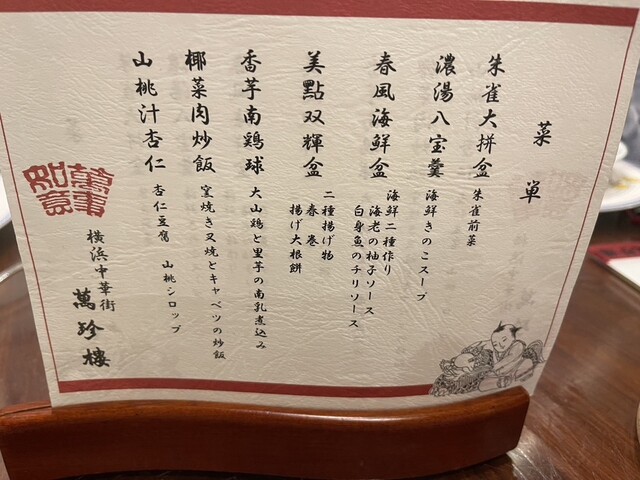 菜単
朱雀大拼盆
朱雀前菜
濃湯八宝羹
海鮮きのこスープ
春風海鮮盆
海鮮二種作り
海老の柚子ソース
白身魚のチリソース
美點双輝盆
二種揚げ物
春巻
揚げ大根餅
香芋南鶏球
大山鶏と里芋の南乳煮込み
椰菜肉炒飯
窯焼き叉焼とキャベツの炒飯
山桃汁杏仁
杏仁豆腐 山桃シロップ
萬事如意
横浜中華街
萬珍樓